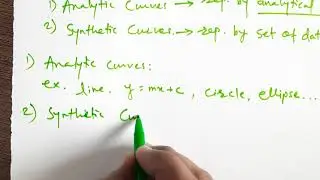 1) Analytic Curves → rep. by analytical
2) Synthetic Curves → rep. by set of dat
1) Analytic curves:
ex. line. y = mx+c, circle, ellipse...
2) Synthetic Cu